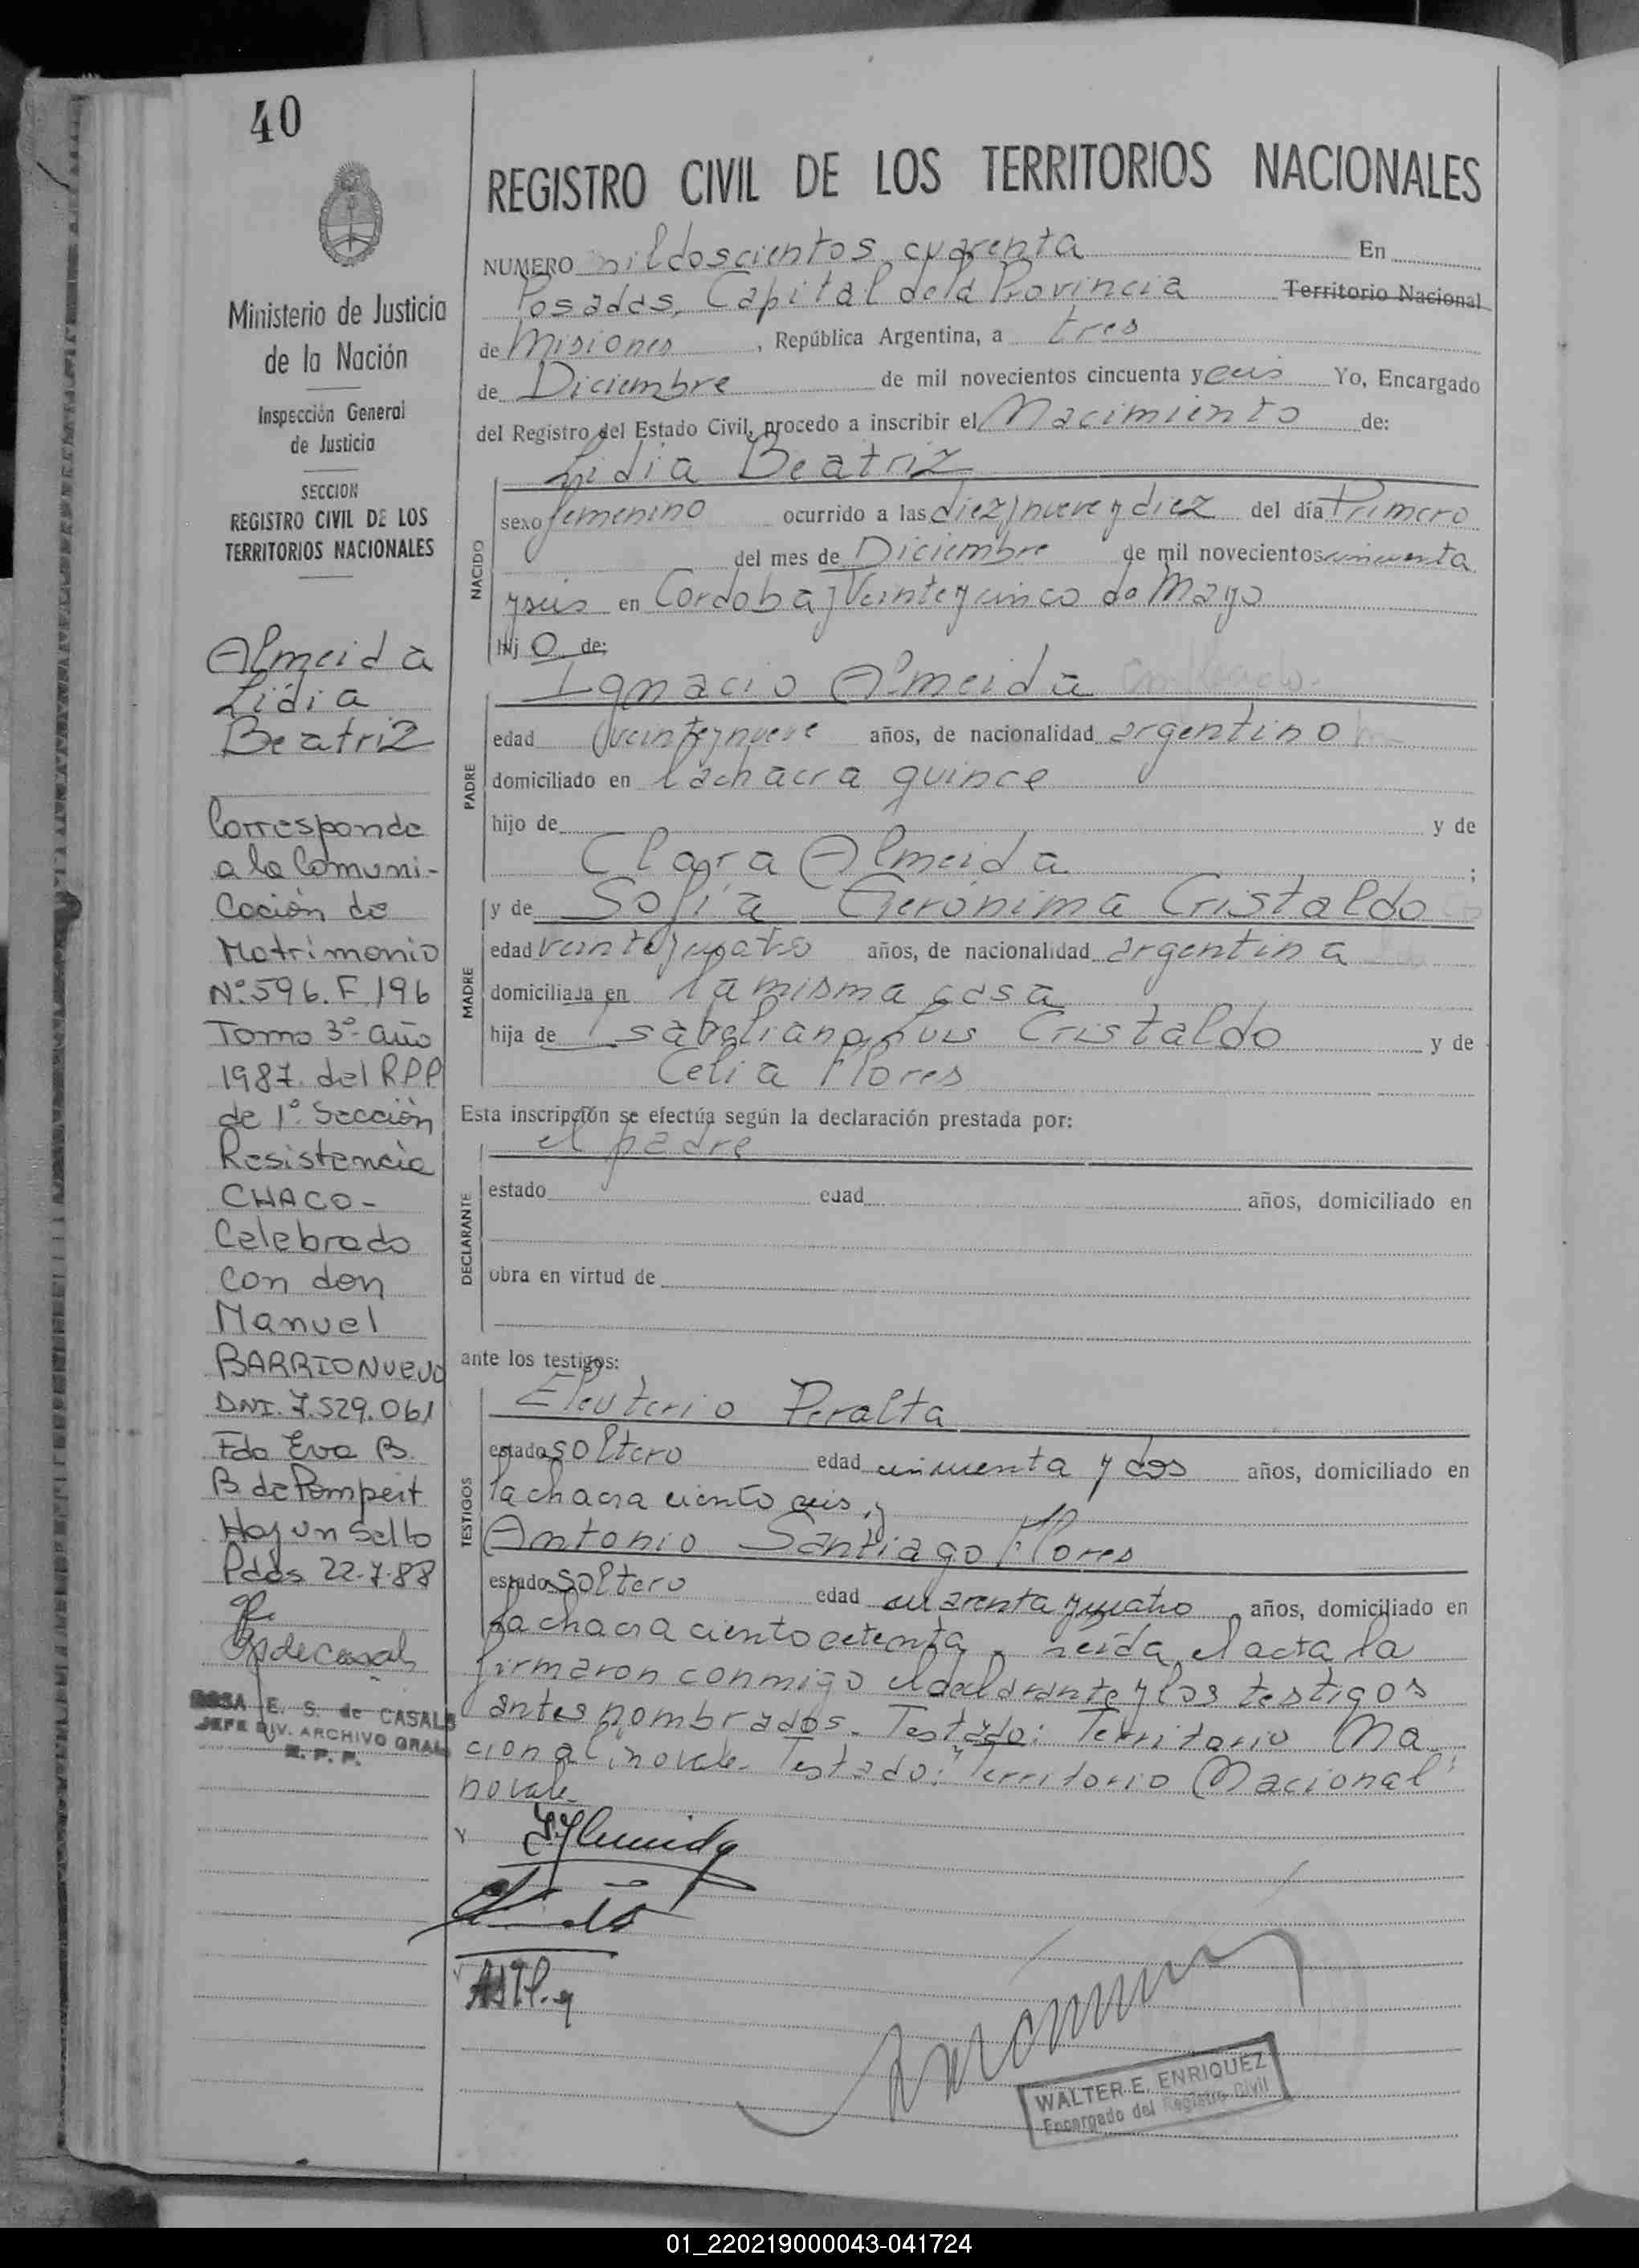 40
Ministerio de Justicia
de la Nación
Inspección General
de Justicia
SECCION
REGISTRO CIVIL DE LOS
TERRITORIOS NACIONALES
Almeida
Lidia
Beatriz
Corresponde
a la Comuni-
cación de
Matrimonio
Nº 596. F 196
Tomo 3º año
1987. del R.P.P
de 1º. Sección
Resistencia
CHACO-
Celebrado
con don
Manuel
BARRIONUEVO
DNI. 7.529.061
Fdo Eva B.
B de Pompert
Hay un Sello
Pdas 22-7-88
de Casals
ROSA E. S. de CASALS
JEFE DIV. ARCHIVO GRAL
R. P. P.
REGISTRO CIVIL DE LOS TERRITORIOS NACIONALES
NUMERO mil doscientos cuarenta En
Posadas, Capital de la Provincia Territorio Nacional
de Misiones, República Argentina, a tres
de Diciembre de mil novecientos cincuenta y seis Yo, Encargado
del Registro del Estado Civil, procedo a inscribir el Nacimiento de:
Lidia Beatriz
NACIDO
sexo femenino ocurrido a las diez y nueve y diez del día Primero
del mes de Diciembre de mil novecientos cincuenta
y seis en Cordoba y Veinte y cinco de Mayo
hij o de:
Ignacio Almeida
PADRE
edad veinte y nueve años, de nacionalidad argentino
domiciliado en la chacra quince
hijo de y de
Clara Almeida ;
y de Sofia Gerónima Cristaldo
MADRE
edad veinte y cuatro años, de nacionalidad argentina
domiciliada en la misma casa
hija de Isabeliano Luis Cristaldo y de
Celia Flores
Esta inscripción se efectúa según la declaración prestada por:
el padre
DECLARANTE
estado edad años, domiciliado en
obra en virtud de
ante los testigos:
Eleuterio Peralta
TESTIGOS
estado soltero edad cincuenta y dos años, domiciliado en
la chacra ciento seis, y
Antonio Santiago Flores
estado soltero edad cuarenta y cuatro años, domiciliado en
La chacra ciento setenta. Leída el acta la
firmaron conmigo el declarante y los testigos
antes nombrados. Testado: Territorio Na
cional: no vale. Testado: "Territorio Nacional"
no vale.
WALTER E. ENRIQUEZ
Encargado del Registro Civil
01_220219000043-041724